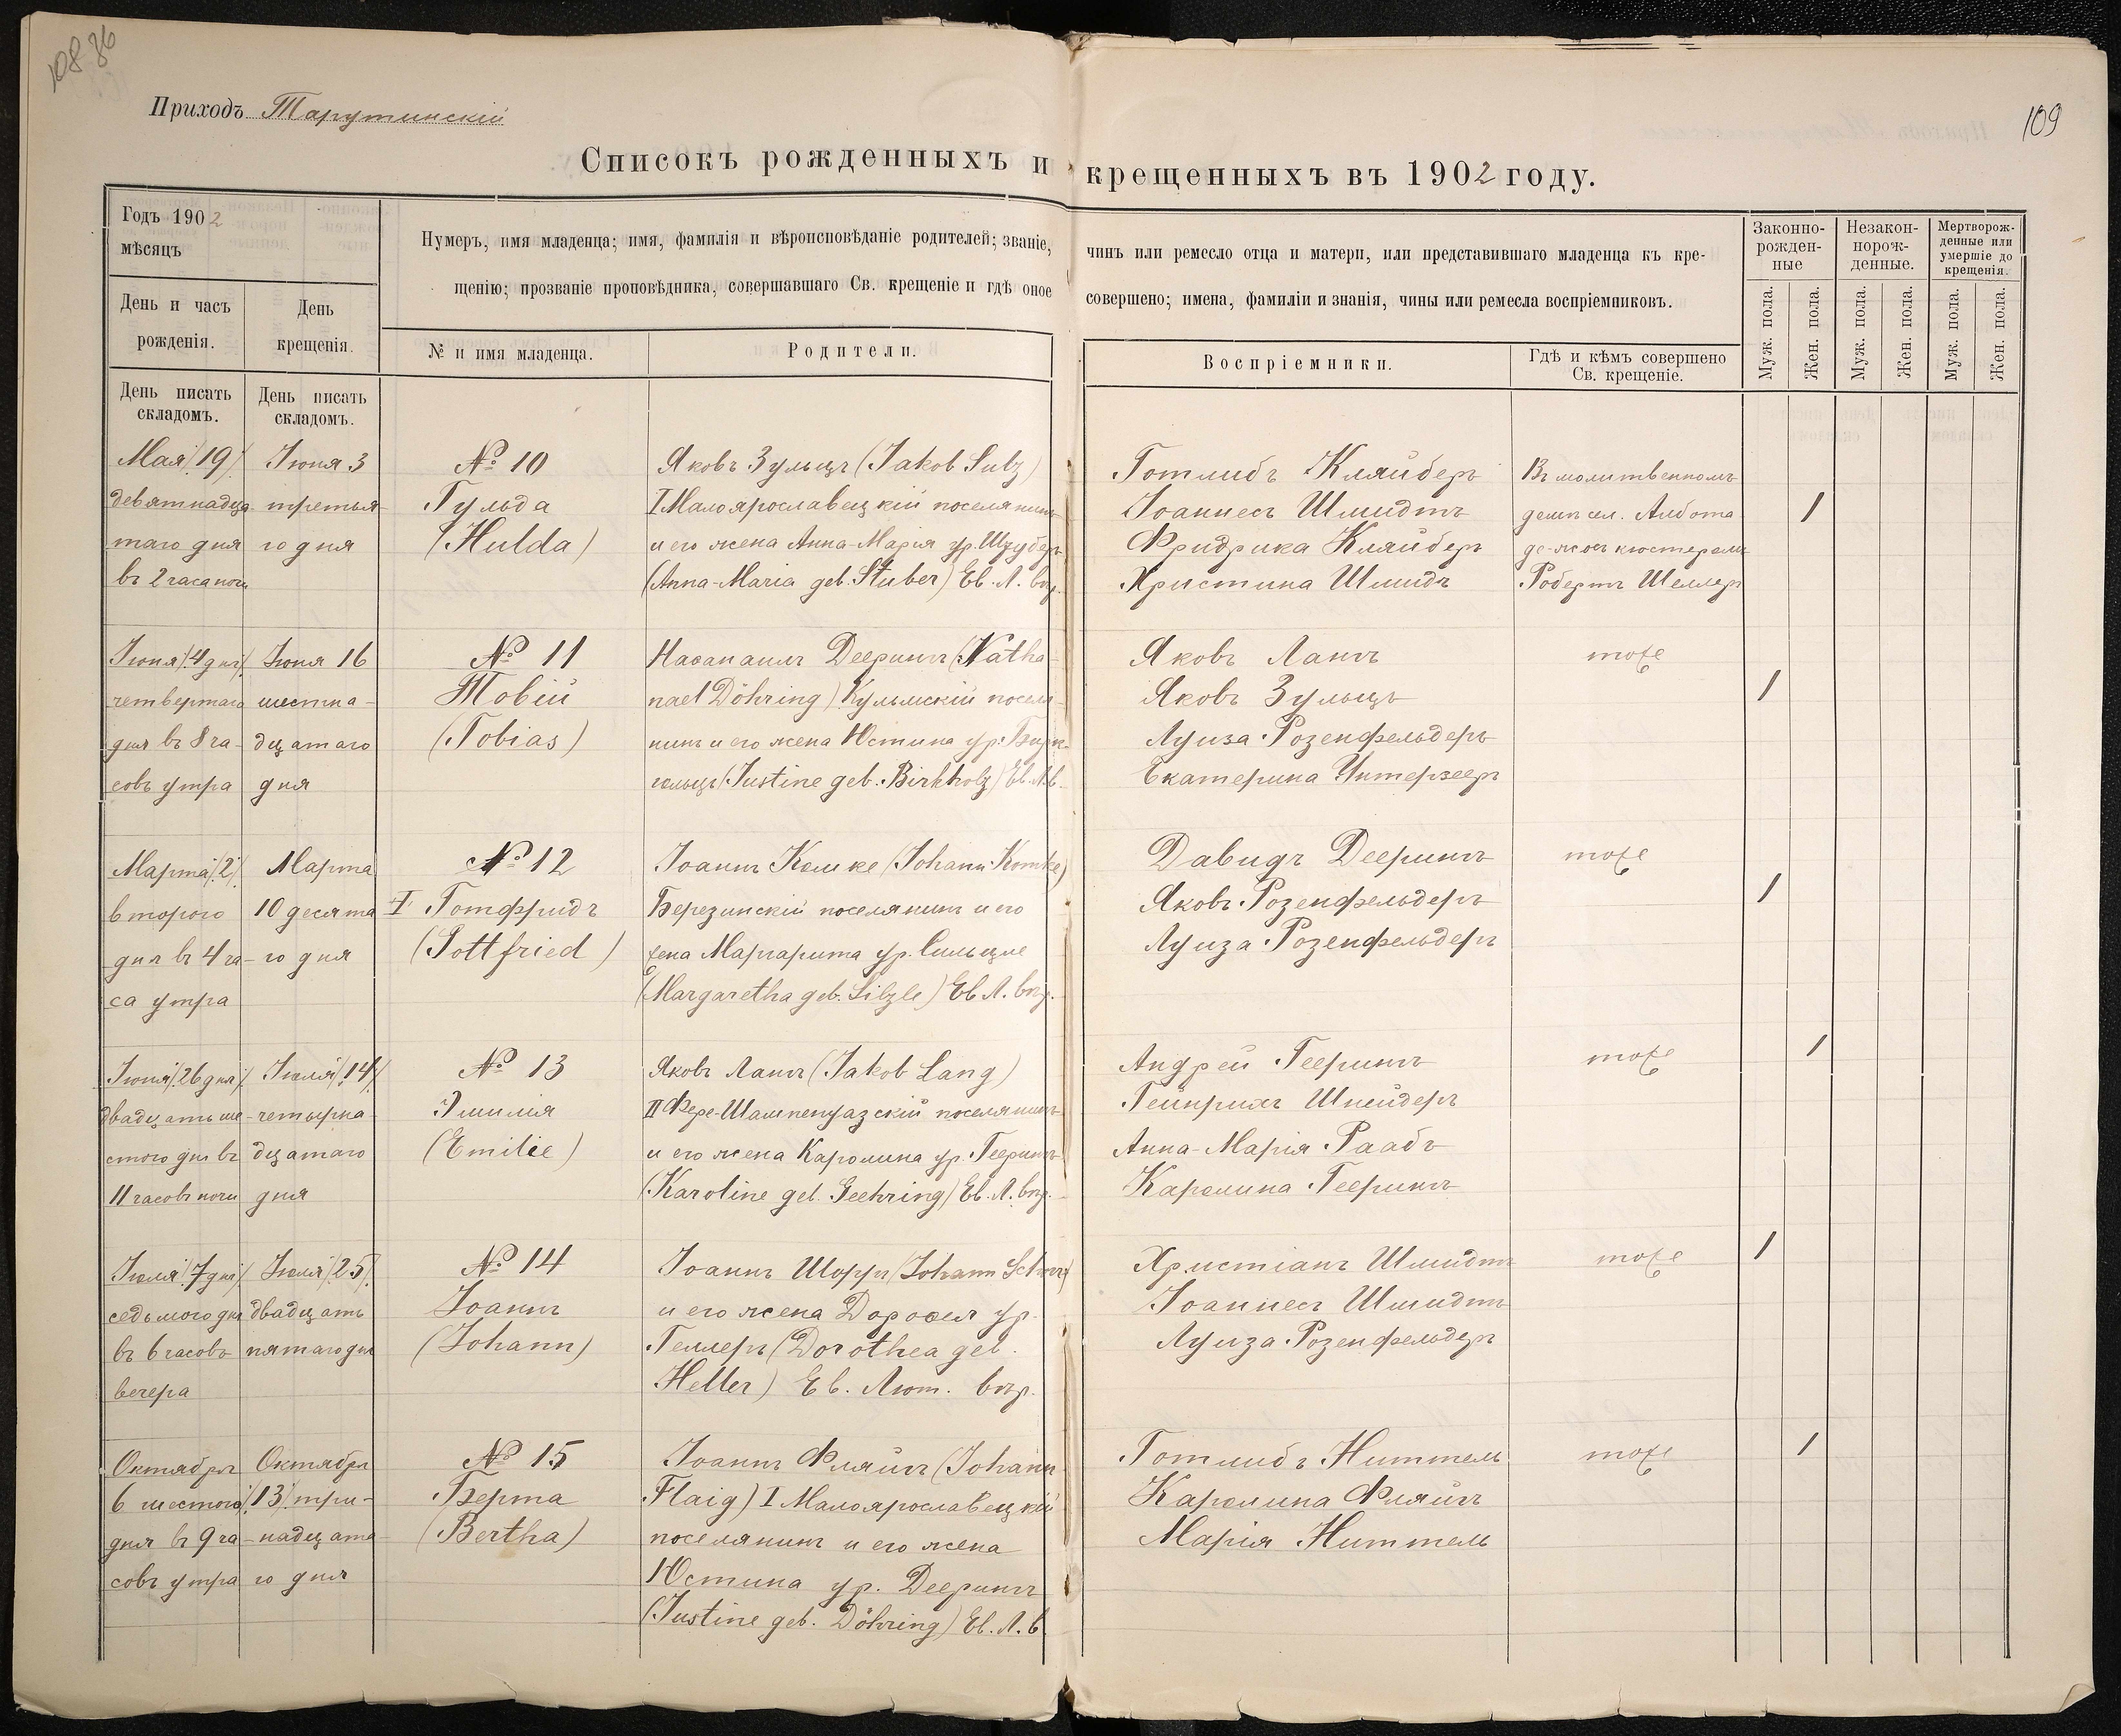 108 86
109
Приходъ Тарутинскій
Списокъ рожденныхъ и крещенныхъ въ 1902 году.
Годъ 1902
мѣсяцъ
День и часъ
рожденія.
День
крещенія.
День писать
складомъ.
День писать
складомъ.
Нумеръ, имя младенца; имя, фамилія и вѣроисповѣданіе родителей; званіе, чинъ или ремесло отца и матери, или представившаго младенца къ кре-
щенію; прозваніе проповѣдника, совершавшаго Св. крещеніе и гдѣ оное совершено; имена, фамиліи и знанія, чины или ремесла воспріемниковъ.
№ и имя младенца.
Родители.
Воспріемники.
Гдѣ и кѣмъ совершено
Св. крещеніе.
Законно-
рожден-
ные
Незакон-
норож-
денные.
Мертворож-
денные или
умершіе до
крещенія.
Муж. пола.
Жен. пола.
Муж. пола.
Жен. пола.
Муж. пола.
Жен. пола.
Мая /19/
девятнадца
таго дня
въ 2 часа ночи
Іюня 3
третья-
го дня
№ 10
Гульда
(Hulda)
Яковъ Зульцъ (Jakob Sulz)
I Малоярославецкій поселянинъ
и его жена Анна-Марія ур. Штуберъ
(Anna-Maria geb. Stuber) Ев. Л. вѣр.
Готлибъ Кляйберъ
Іоаннесъ Шмидтъ
Фридрика Кляйберъ
Христина Шмидъ
Въ молитвенномъ
домѣ сел. Албота
кюстеромъ
Робертъ Шеллеръ
1
Іюня /4 дня/
четвертаго
дня въ 8 ча-
совъ утра
Іюня 16
шестна-
дцатаго
дня
№ 11
Товій
(Tobias)
Наѳанаилъ Дееринъ (Natha-
nael Döhring) Кульмскій поселя-
нинъ и его жена Юстина ур. Бирк-
гольцъ (Justine geb. Birkholz) Ев. Л. в.
Яковъ Лангъ
Яковъ Зульцъ
Луиза Розенфельдеръ
Екатерина Унтерзееръ
тоже
1
Марта /2/
второго
дня въ 4 ча-
са утра
Марта
10 десята
го дня
№ 12
I Готфридъ
(Gottfried)
Іоаннъ Комке (Johann Komke)
Березинскій поселянинъ и его
жена Маргарита ур. Сильцле
(Margaretha geb. Silzle) Ев. Л. вѣр.
Давидъ Деерингъ
Яковъ Розенфельдеръ
Луиза Розенфельдеръ
тоже
1
Іюня /26 дня/
двадцать ше-
стого дня въ
11 часовъ ночи
Іюля /14/
четырна-
дцатаго
дня
№ 13
Эмилія
(Emilie)
Яковъ Лангъ (Jakob Lang)
II Фере-Шампенуазскій поселянинъ
и его жена Каролина ур. Геерингъ
(Karoline geb. Geehring) Ев. Л. вѣр.
Андрей Геерингъ
Гейнрихъ Шнейдеръ
Анна-Марія Раабъ
Каролина Геерингъ
тоже
1
Іюля /7 дня/
седьмого дня
въ 6 часовъ
вечера
Іюля /25/
двадцать
пятаго дня
№ 14
Іоаннъ
(Johann)
Іоаннъ Шорръ (Johann Schorr)
и его жена Дороѳея ур.
Геллеръ (Dorothea geb.
Heller) Ев. Лют. вѣр.
Христіанъ Шмидтъ
Іоаннесъ Шмидтъ
Луиза Розенфельдеръ
тоже
1
Октября
6 шестого
дня въ 9 ча-
совъ утра
Октября
/13/ три-
надцата-
го дня
№ 15
Берта
(Bertha)
Іоаннъ Фляйгъ (Johann
Flaig) I Малоярославецкій
поселянинъ и его жена
Юстина ур. Деерингъ
(Justine geb. Döhring) Ев. Л. в.
Готлибъ Ниттель
Каролина Фляйгъ
Марія Ниттель
тоже
1